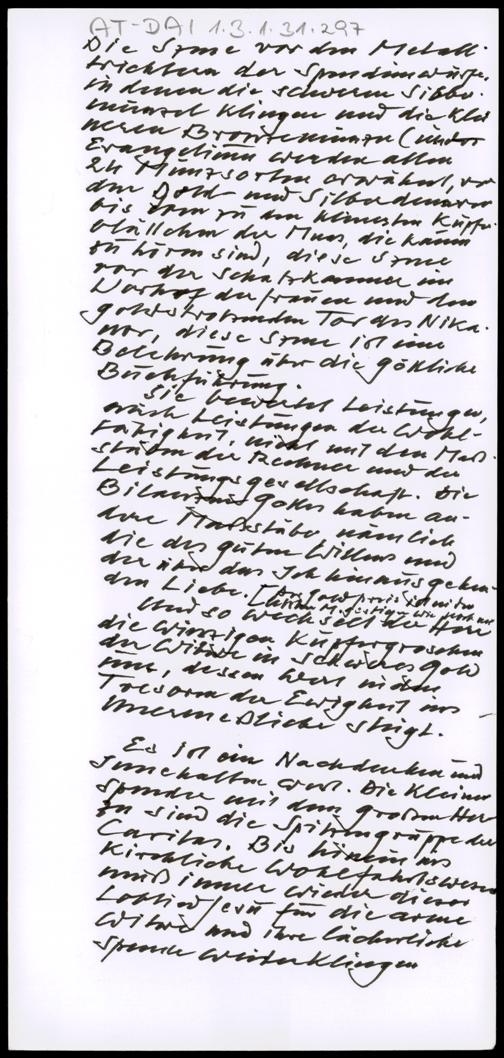 AT-DAI 1.3.1.31.297
Die Szene vor den Metall-
trichtern der Spendenwürfe,
in denen die schweren Silber-
münzen klingen und die klei
neren Bronzemünzen (in der
Evangelien werden allen
24 Münzsorten erwähnt, von
den Gold und Silberdenaren
bis hin zu den kleinsten Kupfer-
blättchen der Mus, die kaum
zu hören sind, diese Szene
vor der Schatzkammer im
Vorhof der Frauen und dem
goldstrotzenden Tor des Nika-
nor, diese Szene ist eine
Belehrung über die göttliche
Buchführung.
Sie bewertet Leistungen,
auch Leistungen der Wohl-
tätigkeit, nicht mit den Maß-
stäben der Rechner und der
Leistungsgesellschaft. Die
Bilanzen Gottes haben an-
dere Massstäbe, nämlich
die des guten Willens und
der über das Ich hinausgehen-
den Liebe. [Der Goldpreis ist mit
Und so wechselt der Herr
die winzigen Kupfergroschen
der Witwe in schweres Gold
um, dessen Wert in den
Tresoren der Ewigkeit ins
Unermeßliche steigt.
Es ist ein Nachdenken und
Innehalten wert. Die kleinen
Spender mit dem großen Her
zen sind die Spitzengruppe der
Caritas. Bis hinein ins
kirchliche Wohlfahrtswesen
muß immer wieder dieser
Loblied Jesu für die arme
Witwe und ihre lächerliche
Spende weiterklingen